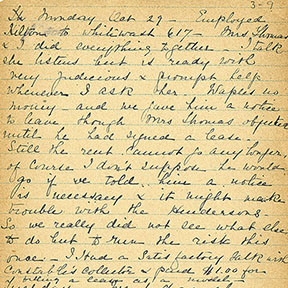 3-9
Monday Oct 29 - Employed
Kilfoth to Whitewash 617 - Mrs Thomas
& I did everything together - I talk
she listens but is ready with
very judicious & prompt help
whenever I ask her. Waples no
money - and we gave him a notice
to leave though Mrs Thomas objected
until he had signed a lease.
Still the rent cannot go any longer,
of course I don't suppose he would
go if we told him a notice
is necessary & it might make
trouble with the Hendersons.
So we really did not see what else
to do but to run the risk this
once - I had a satisfactory talk with
Constable's collector & paid $1.00 for
a lease as a model -